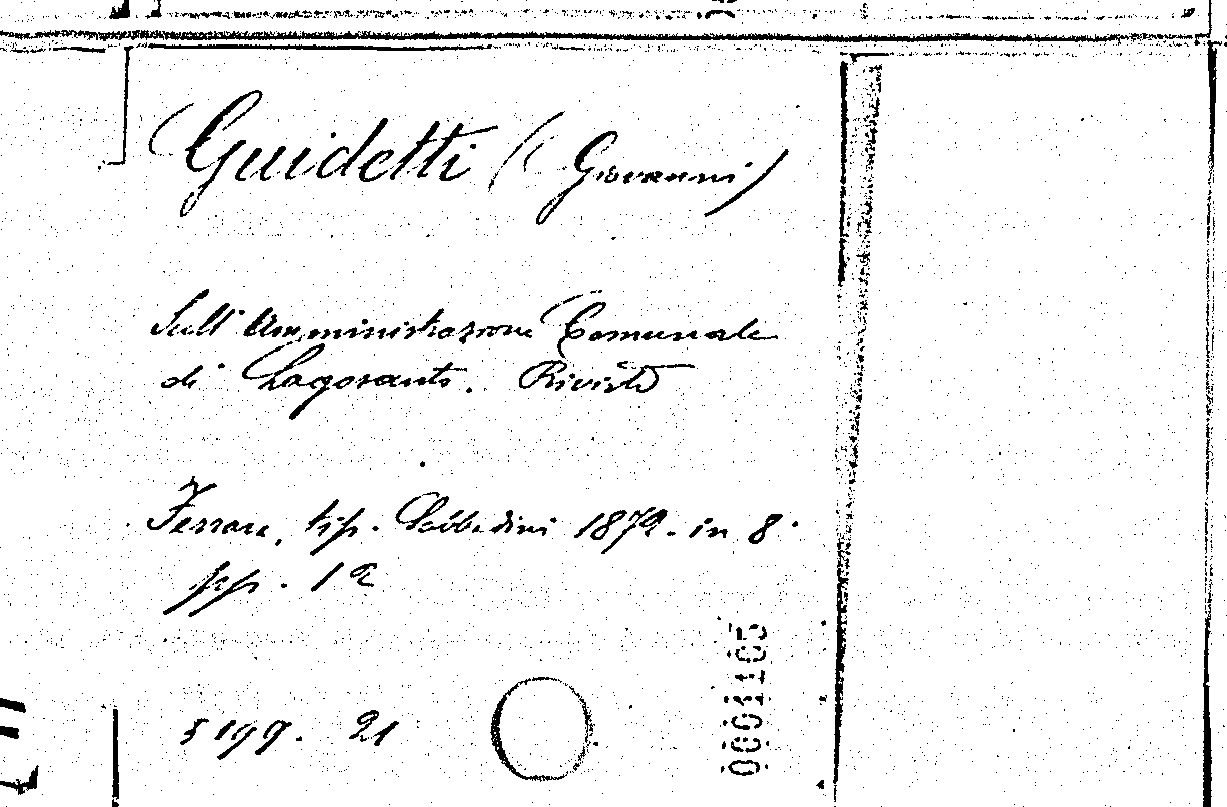 Guidetti (Giovanni)
Sull' Amministrazione Comunale
di Lagosanto. Rivista
Ferrara, tip. Sabbadini 1872. in 8°
pp. 12
5199. 21
0001105